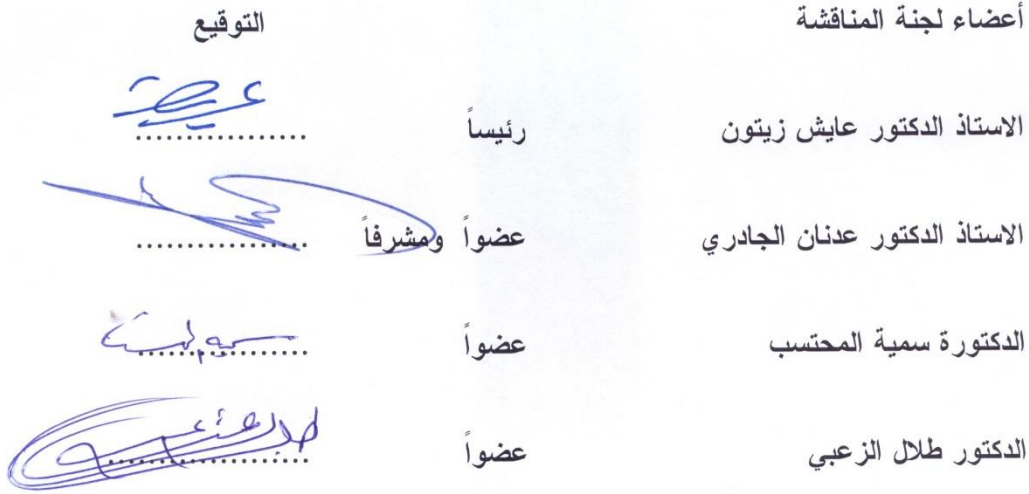 أعضاء لجنة المناقشة التوقيع
الاستاذ الدكتور عايش زيتون رئيساً ................
الاستاذ الدكتور عدنان الجادري عضواً ومشرفاً ................
الدكتورة سمية المحتسب عضواً ................
الدكتور طلال الزعبي عضواً ................